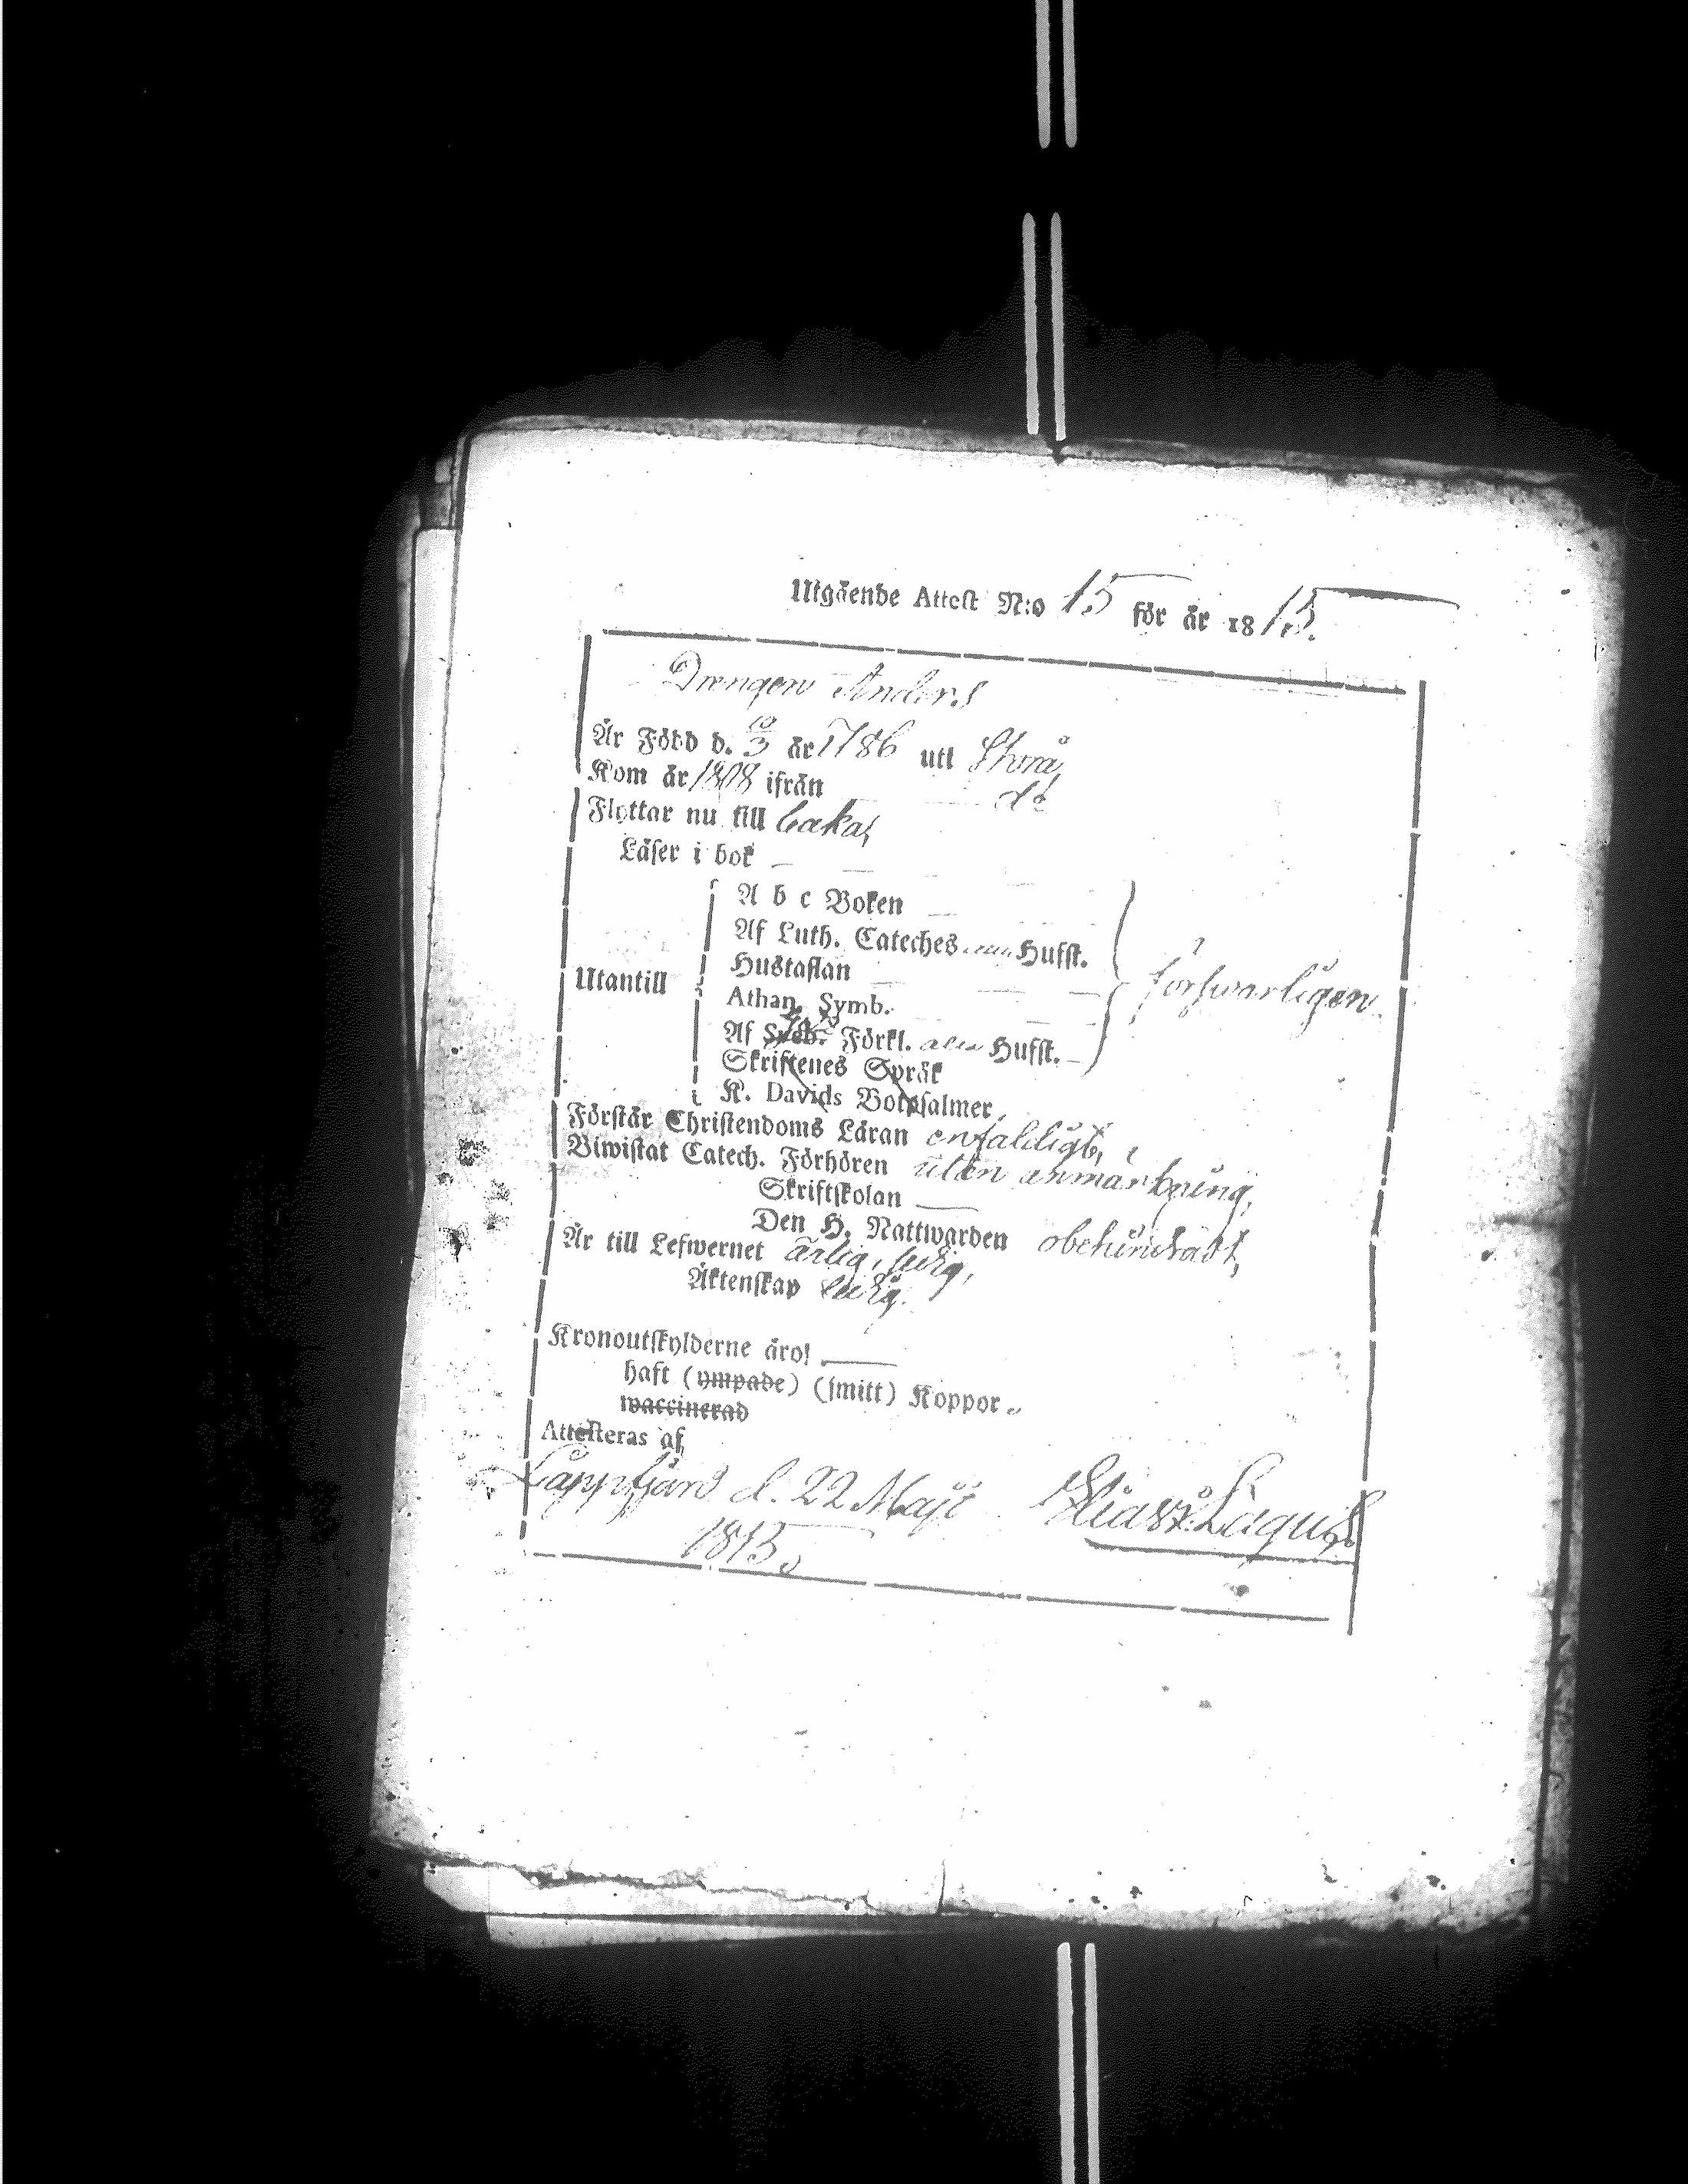 Utgående Attest N:o 15 för år 1815.
Drengen Anders
Är Född d. 10/3 år 1786 uti Storå,
Kom år 1808 ifrån do
Flyttar nu till baka,
Läser i bok
A b c Boken
Af Luth. Cateches Hufst.
Hustaflan
Utantill försvarligen
Athan. Symb.
Af Förkl. alla Hufst.
Skriftenes Språk
K. Davids Botpsalmer,
Förstår Christendoms Läran enfaldigt,
Biwistat Catech. Förhören utan anmärkning,
Skriftskolan
Den H. Nattwarden obehindradt,
Är till Lefwernet ärlig, ledig,
Äktenskap ledig.
Kronoutskylderne äro
haft (ympade) (smitt) Koppor.
waccinerad
Attesteras af
Lappfjärd d. 22 Maji
1815.
Elias Lagus